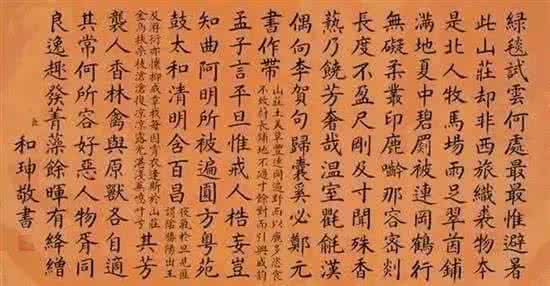 綠毯試雲何處最最惟避暑
此山莊却非西旅織裘物本
是北人牧馬場雨足翠茵鋪
滿地夏中碧罽被連岡鶴行
無礙柔叢印鹿齝那容剡
長度不盈尺剛及寸聞殊香
爇乃饒芳奢哉温室氍毹漢
偶句李賀句歸囊奚必鄭元
書作帶
孟子言平旦惟戒人梏妄豈
知曲阿明所被遍圓方粵苑
鼓太和清明含百昌
其芳
襲人香林禽與原獸各自適
其常何所容好惡人物胥同
良逸趣發菁藻餘暉有絳繒
臣和珅敬書